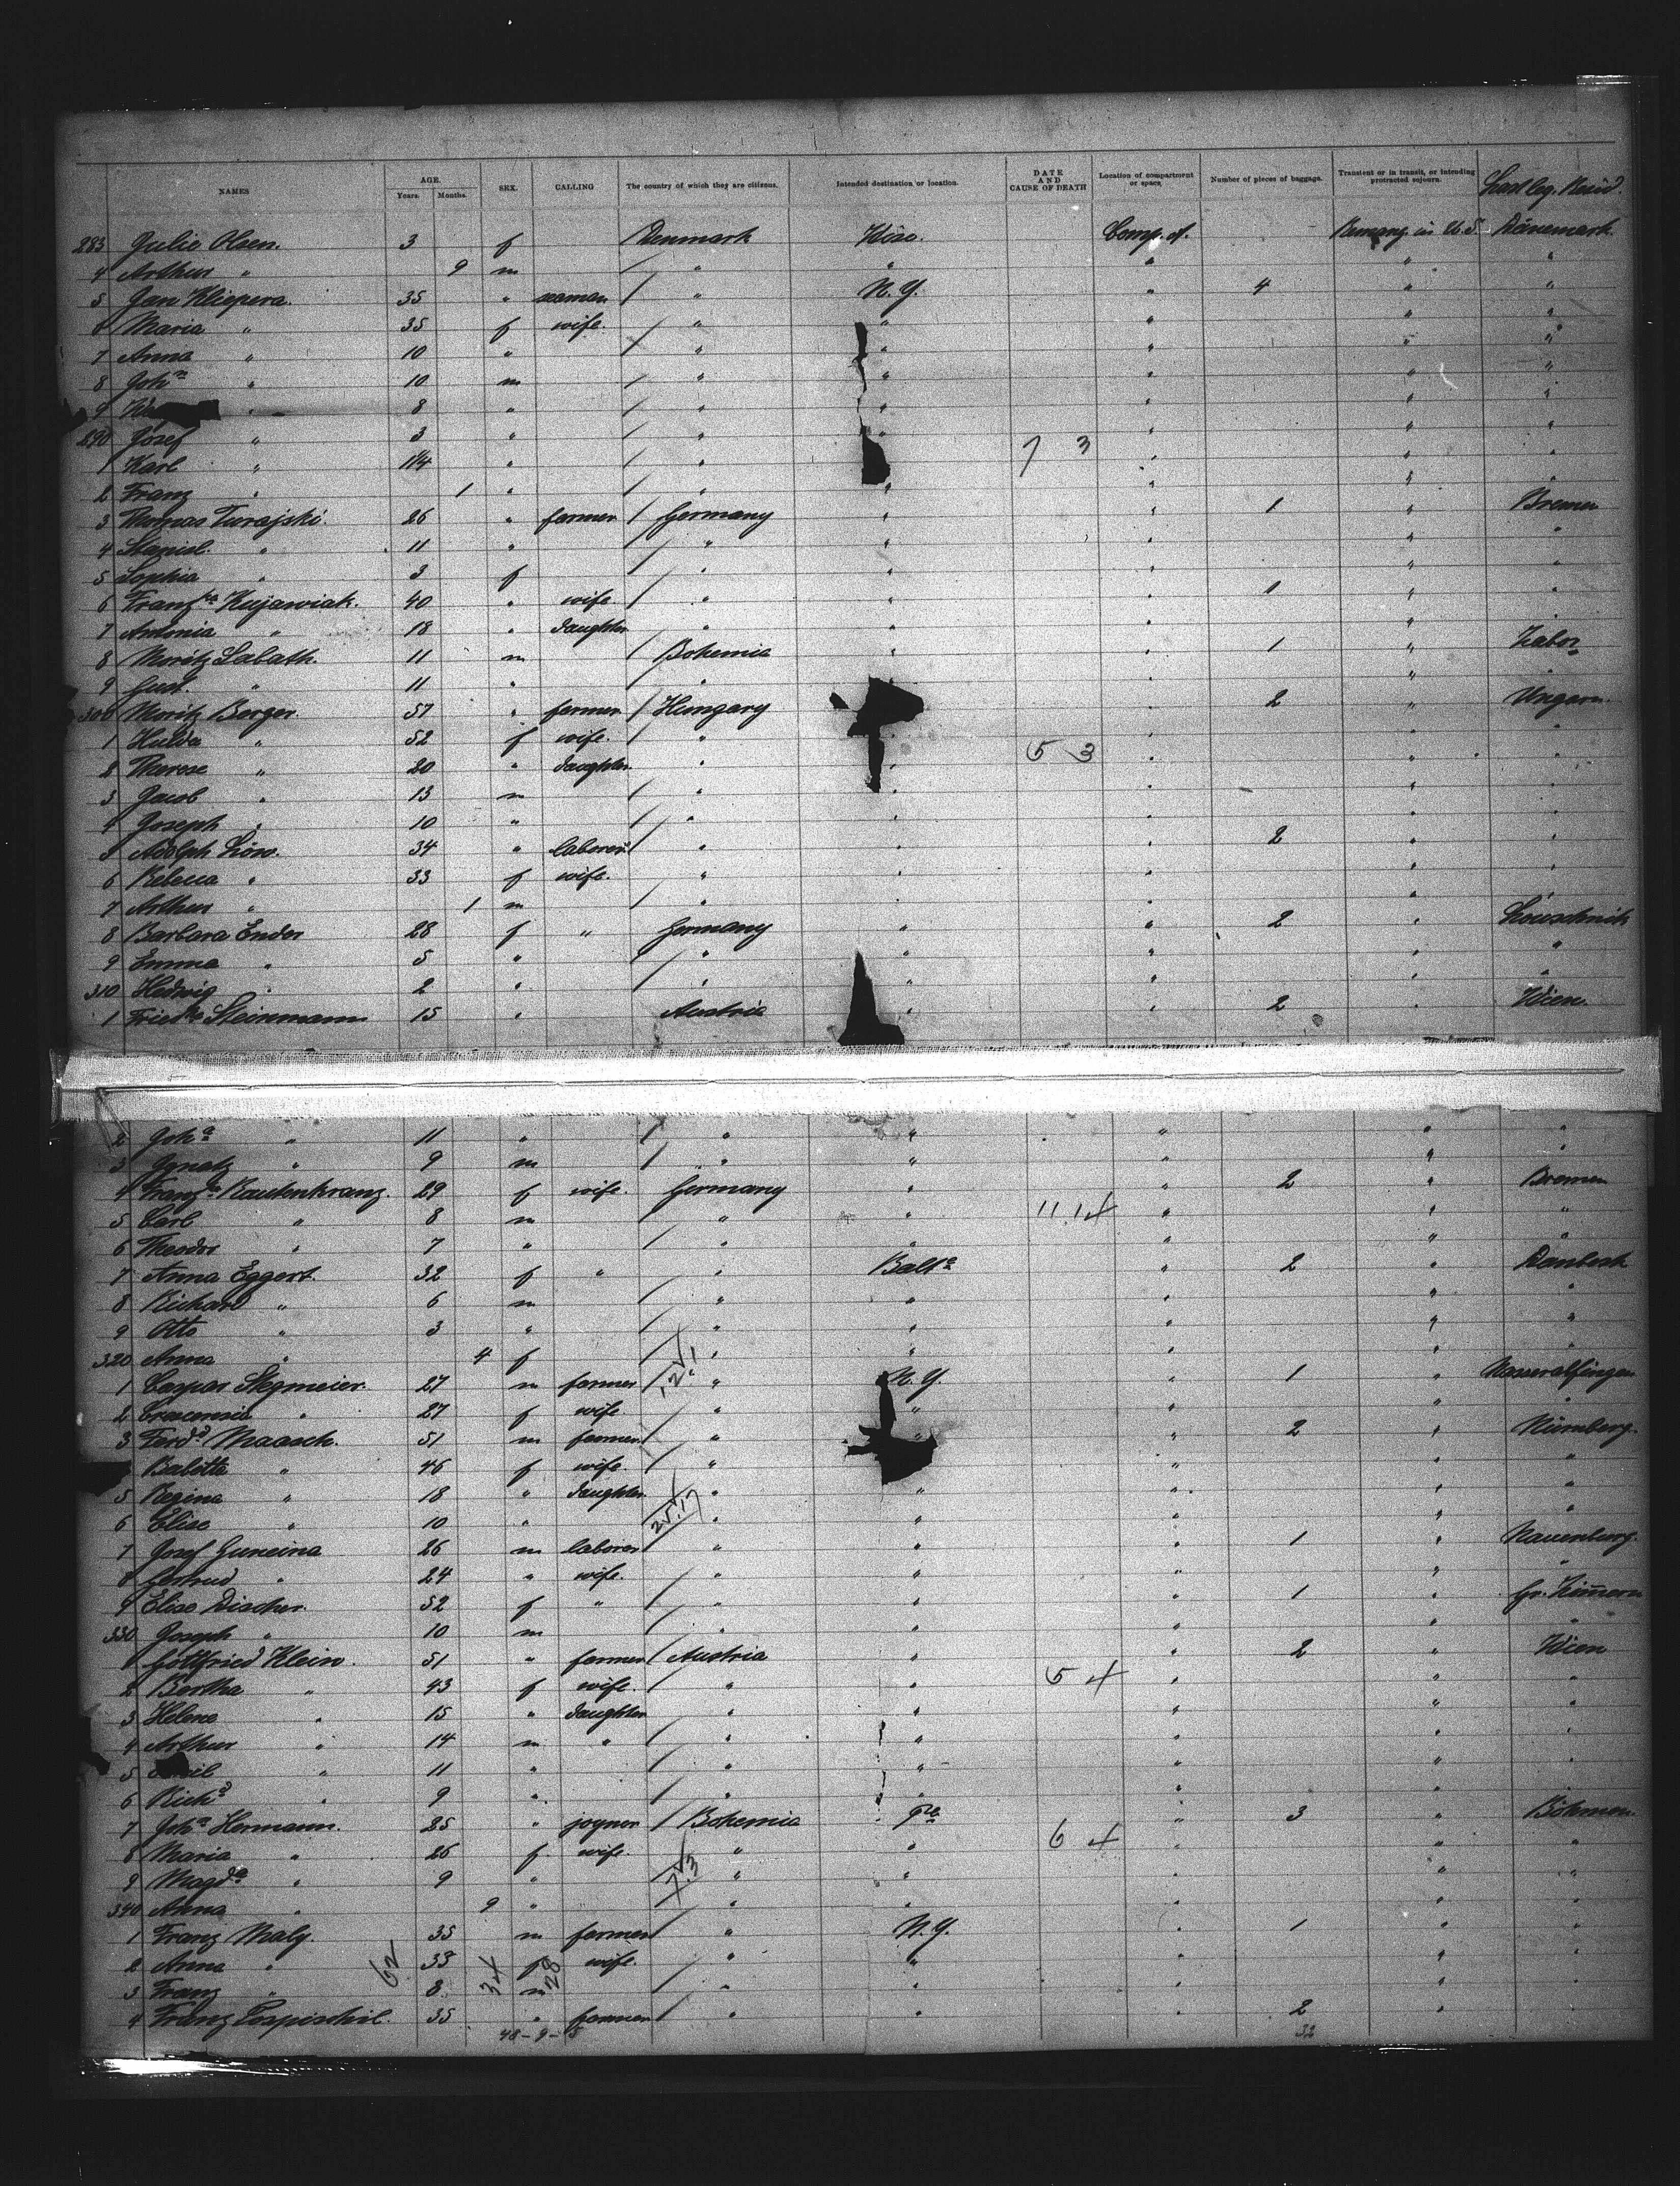 NAMES AGE. Years. Months. SEX. CALLING The country of which they are citizens. Intended destination or location. DATE AND CAUSE OF DEATH Location of compartment or space. Number of pieces of baggage. Transient or in transit, or intending protracted sojourn. Last leg. Resid.
283 Julie Olsen. 3 f Denmark Wisc. Comp. Remang. in U.S. Dänemark.
4 Arthur " 9 m / " " " " "
5 Jan Kliepera. 35 " seaman / " N.Y. " 4 " "
6 Maria " 35 f wife. / " " " " "
7 Anna " 10 " / " " " " "
8 Joh. " 10 m / " " " " "
9 " 8 " / " " " " "
290 Josef " 3 " / " " " " "
1 Karl " 11/4 " / " " 7 3 " " "
2 Franz " 1 " / " " " " "
3 Thomas Turajski. 26 " farmer / Germany " " 1 " Bremen
4 Stanisl. " 11 " / " " " " "
5 Sophia " 3 f / " " " " "
6 Franz.ca Kujawiak. 40 " wife / " " " 1 " "
7 Antonia " 18 " daughter " " " " "
8 Moritz Labath. 11 m / Bohemia " " 1 " Tabor
9 Gust. " 11 " / " " " "
300 Moritz Berger. 57 " farmer / Hungary " 2 " Ungarn.
1 Hulda " 52 f wife. / " " " "
2 Therese " 20 " daughter " " 5 3 " " "
3 Jacob " 13 m / " " " " "
4 Joseph " 10 " / " " " " "
5 Adolph Löw. 34 " laborer / " " " 2 " "
6 Rebecca " 33 f wife. / " " " " "
7 Arthur " 1 m / " " " " "
8 Barbara Ender 28 f " Germany " " 2 "
9 Emma " 5 " / " " " " "
310 Hedwig " 2 " / " " " " "
1 Fried.ke Steinmann 15 " Austria " " 2 " Wien.
2 Joh.a " 11 " / " " " " "
3 Ignatz " 9 m / " " " " "
4 Franz.ca Rautenkranz. 29 f wife. Germany " " 2 " Bremen
5 Carl " 8 m / " " 11.14 " " "
6 Theodor " 7 " / " " " " "
7 Anna Eggert. 32 f " " Balt.e " 2 "
8 Richard " 6 m / " " " " "
9 Otto " 3 " / " " " " "
320 Anna " 4 f / " " " " "
1 Caspar Stegmeier. 27 m farmer / " N.Y. " 1 " Wasseralfingen
2 Crescensia " 27 f wife. / " " " " "
3 Ferd.d Maasch. 51 m farmer. / " " " 2 " Nürnberg.
Babette " 46 f wife. / " " " "
5 Regina " 18 " daughter " " " " "
6 Elise " 10 " / " " " " "
7 Josef Guneina 26 m laborer / " " " 1 " Nauenburg.
8 Gertrud " 24 " wife. / " " " " "
9 Elise Discher. 52 f " / " " " 1 " Gr. Zimmern
330 Joseph " 10 m / " " " " "
1 Gottfried Klein. 51 " farmer / Austria " " 2 " Wien
2 Bertha " 43 f wife. / " " 5 4 " " "
3 Helene " 15 " daughter " " " " "
4 Arthur " 14 m " / " " " "
5 " 11 " / " " " " "
6 Rich.d " 9 " / " " " " "
7 Joh.n Hermann. 25 " joyner / Bohemia Pa " 3 " Böhmen.
8 Maria " 26 f. wife. / " " 6 4 " " "
9 Magd.a " 9 " / " " " " "
340 Anna " 9 " / " " " " "
1 Franz Maly. 35 m farmer / " N.Y. " 1 " "
2 Anna " 33 f wife. " " " " "
3 Franz " 8 m / " " " " "
4 Franz Pospischil. 35 " farmer / " " " 2 "
62 34 28
48-9-5 32